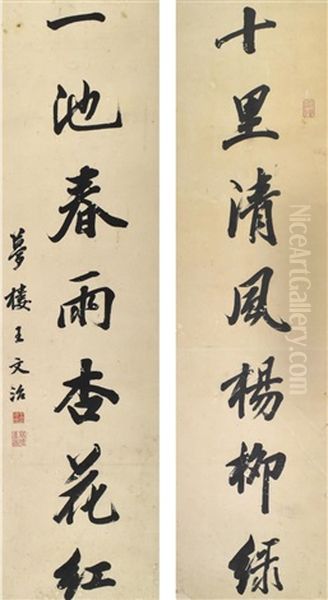 十里清风楊柳绿
一池春雨杏花紅
夢樓王文治
NiceArtGallery.com